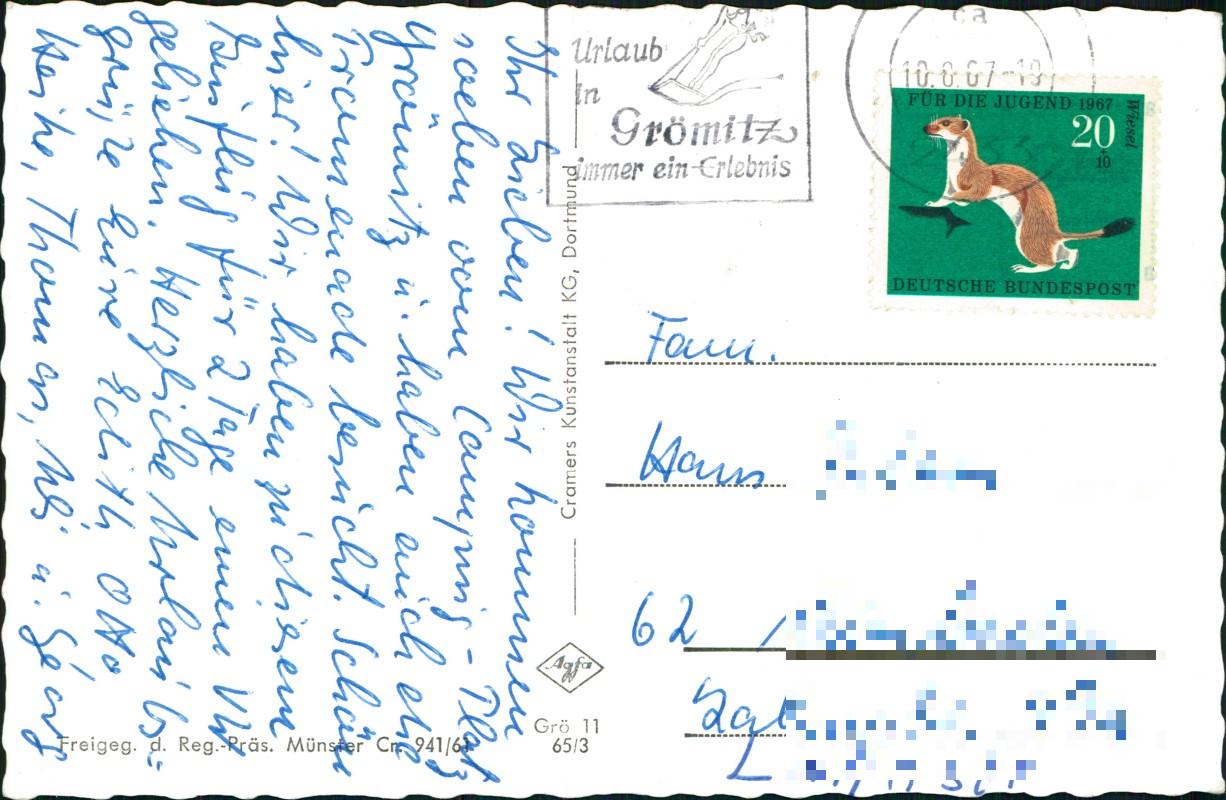 Urlaub
in
Grömitz
immer ein Erlebnis
ca
10.8.67-19
FÜR DIE JUGEND 1967
Wiesel
20
+10
DEUTSCHE BUNDESPOST
Ihr Lieben! Wir kommen
soeben vom Camping-Platz
Grömitz u. haben auch die
Promenade besucht. Schön
hier! Wir haben zu diesem
Ausflug für 2 Tage einen VW
geliehen. Herzliche Urlaubs-
grüße Eure Edith, Otto
Heike, Thomas, Uli u. Georg
Cramers Kunstanstalt KG, Dortmund
Agfa
Grö 11
65/3
Freigeg. d. Reg.-Präs. Münster Cr. 941/61
Fam.
Hans
62